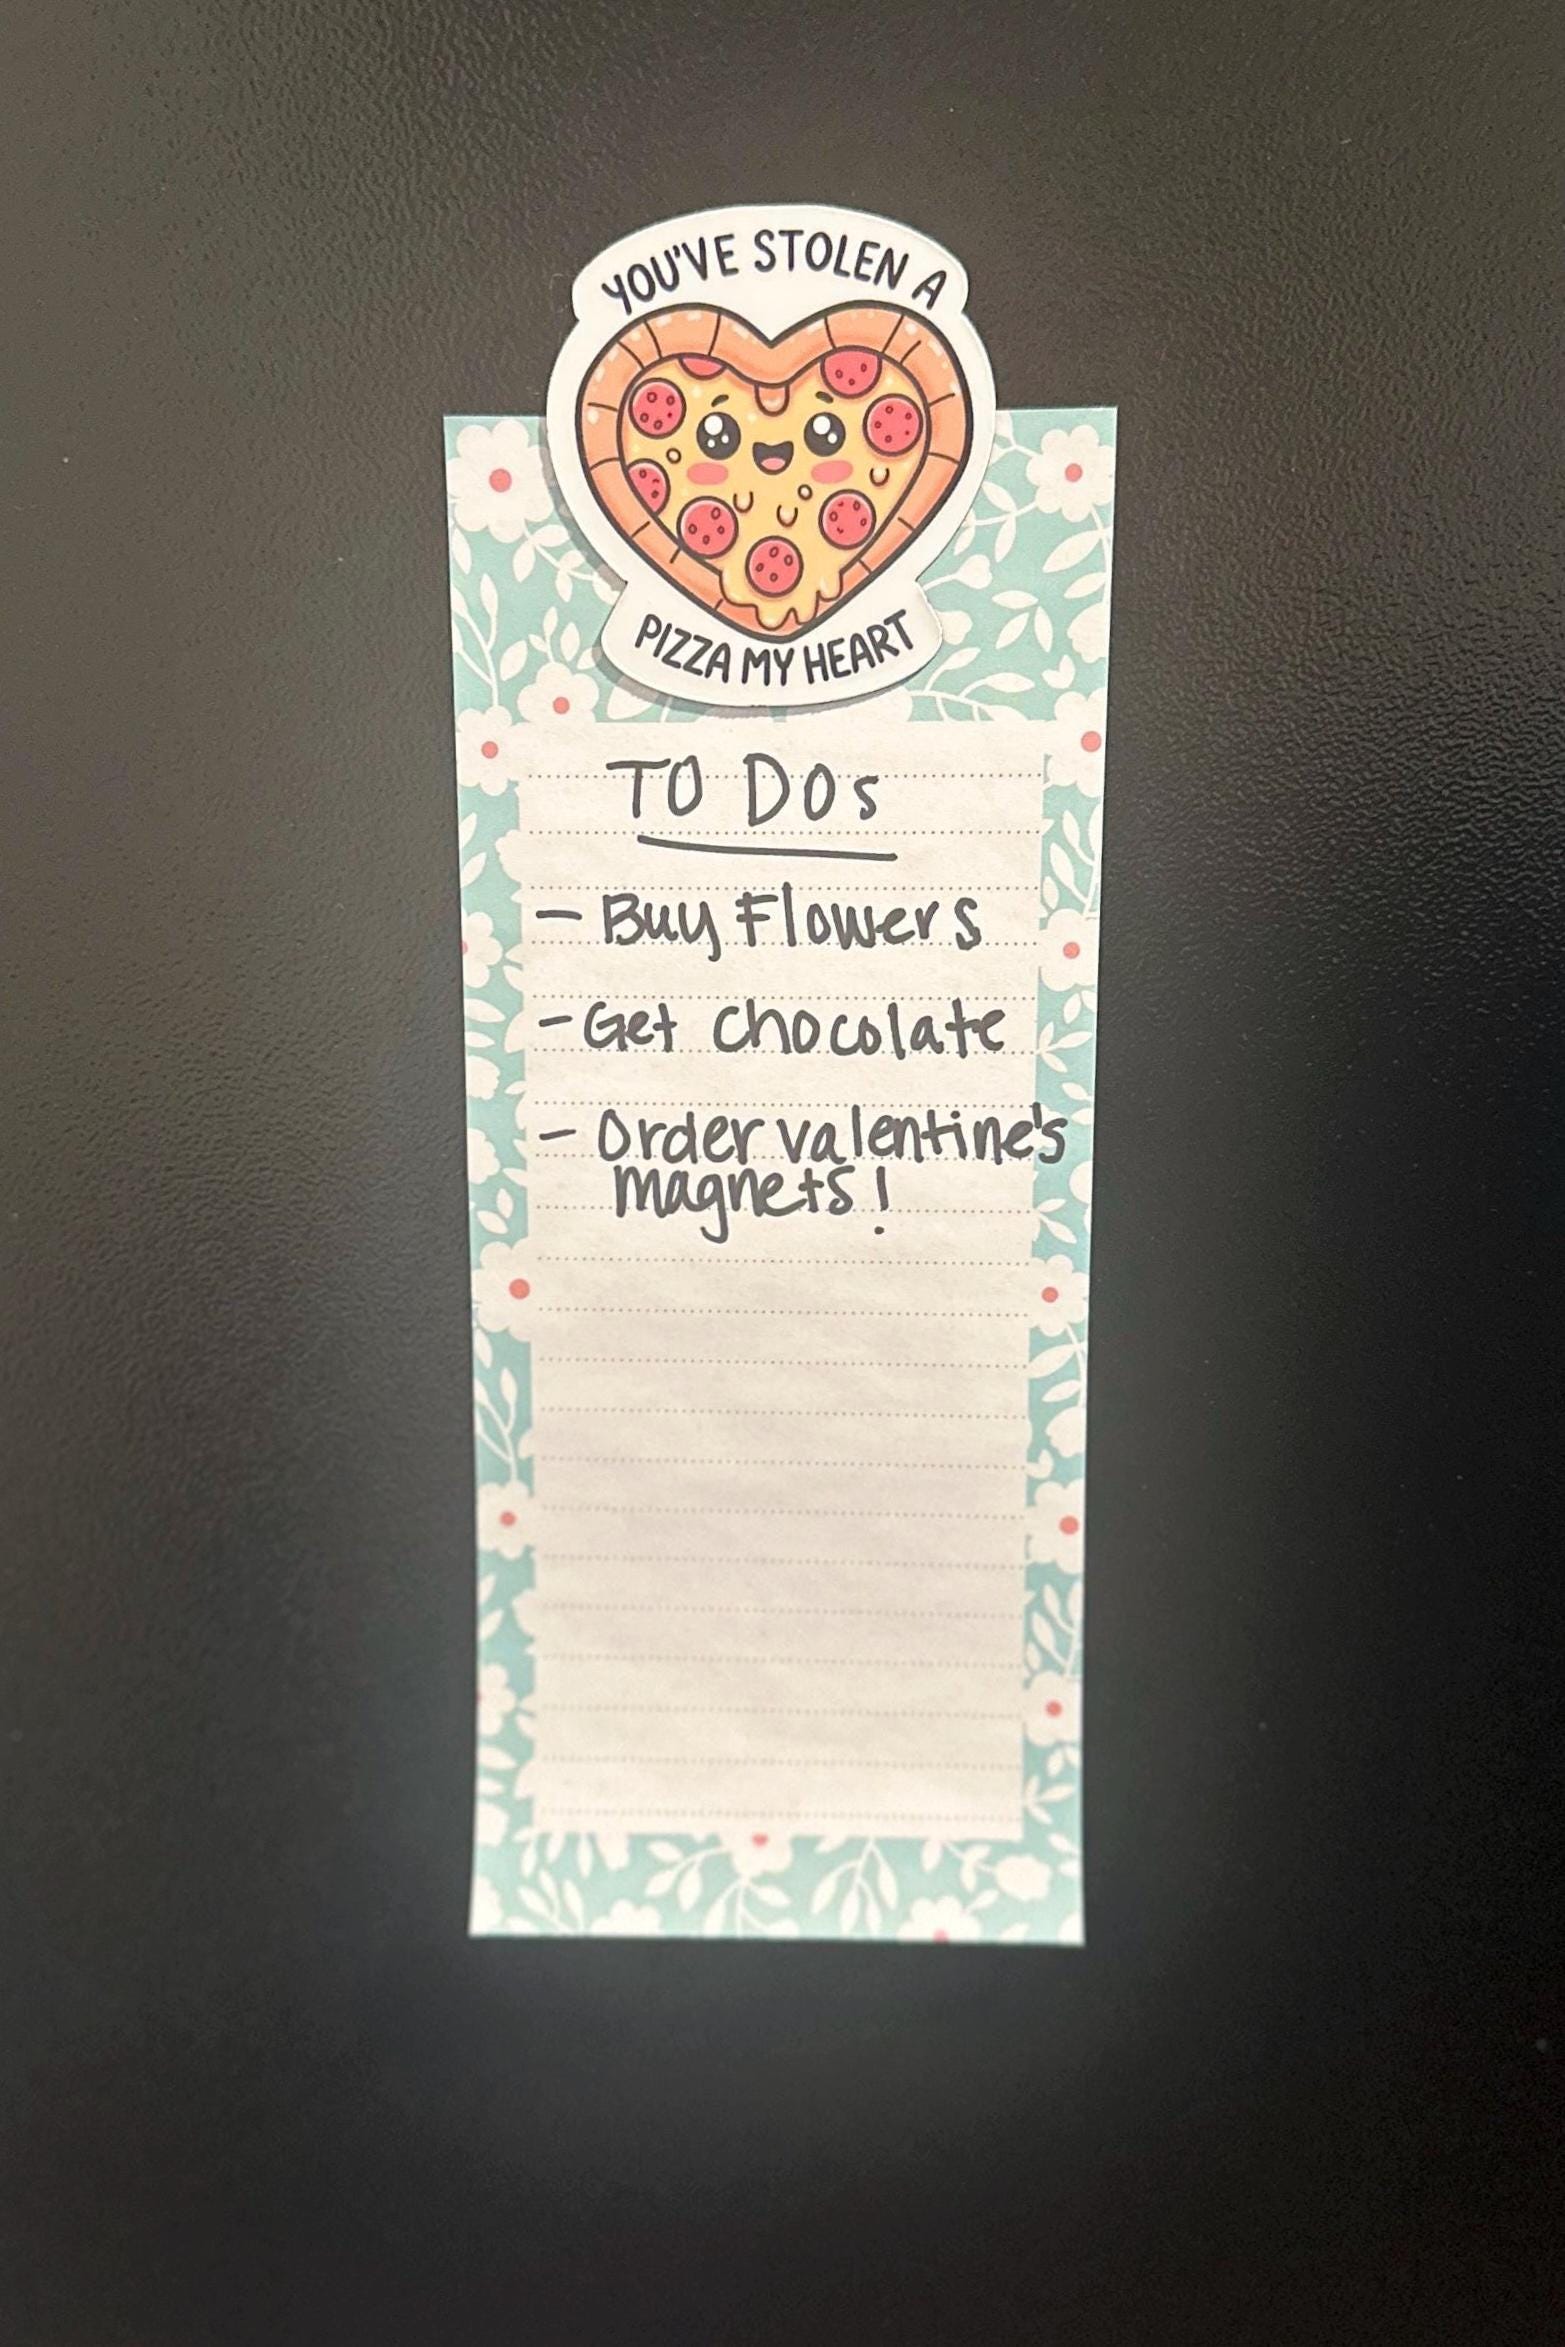 YOU'VE STOLEN A
PIZZA MY HEART
TO DOs
- Buy Flowers
- Get chocolate
- Order valentine's
magnets!